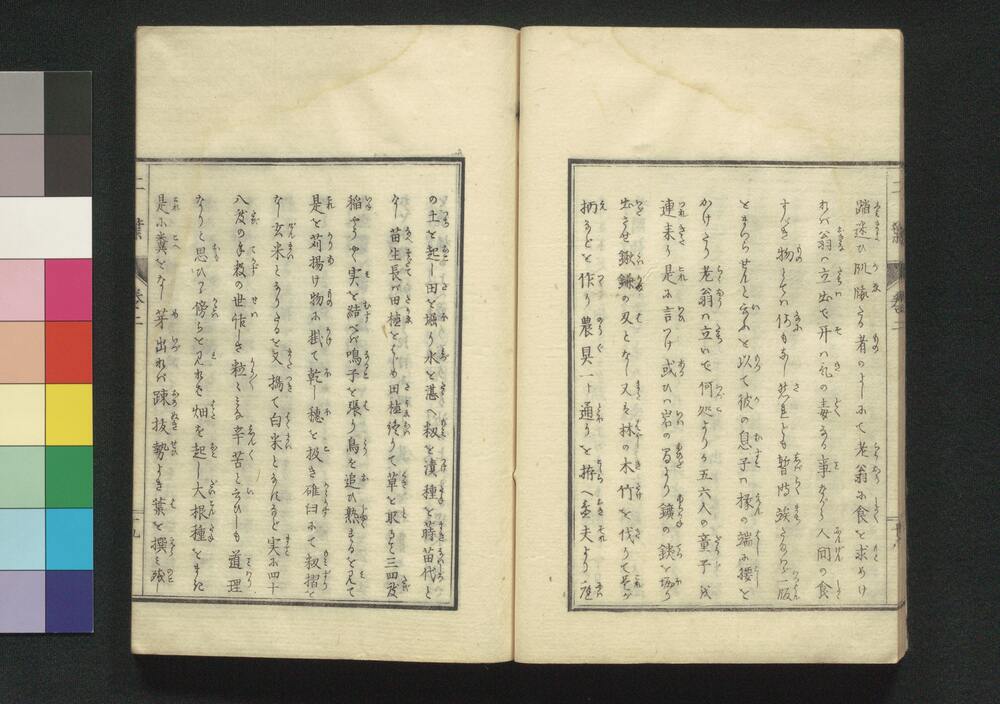 踏迷ひ飢疲たる者のよしにて老翁に食を求めけ
れバ翁ハ立出て夫ハ気の毒なる事ながら人間の食
すべき物とてハ何もなし然れども暫時俟たるべし一飯
をまゐらせんと云を以て彼の息子ハ椽の端に腰を
かけたり老翁ハ立いで何処よりか五六人の童子を
連来り是に言つけ或ひハ岩の間より鐵の銕を堀り
出させ鍬鎌の刃となし又ハ林の木竹を伐りて其が
柄などを作り農具一ト通りを拵へ夫より庭
の土を起し田を掘り水を湛へ籾を漬種を蒔苗代と
なし苗生長バ田植をはじめ田植終りて草を取こと三四度
稲やうやく実を結べバ鳴子を張り鳥を追ひ熟するを見て
是を苅揚げ物に掛て乾し穂を扱き碓臼にて籾摺を
なし玄米となりたるを又搗て白米となすなど実に四十
八度の手数の世話しき粒々みな辛苦と云ひしも道理
なりと思ひつゝ傍らを見れバ畑を起し大根種をまき
是に糞をなし芽出れバ踈抜勢よき葉を撰ミ残し